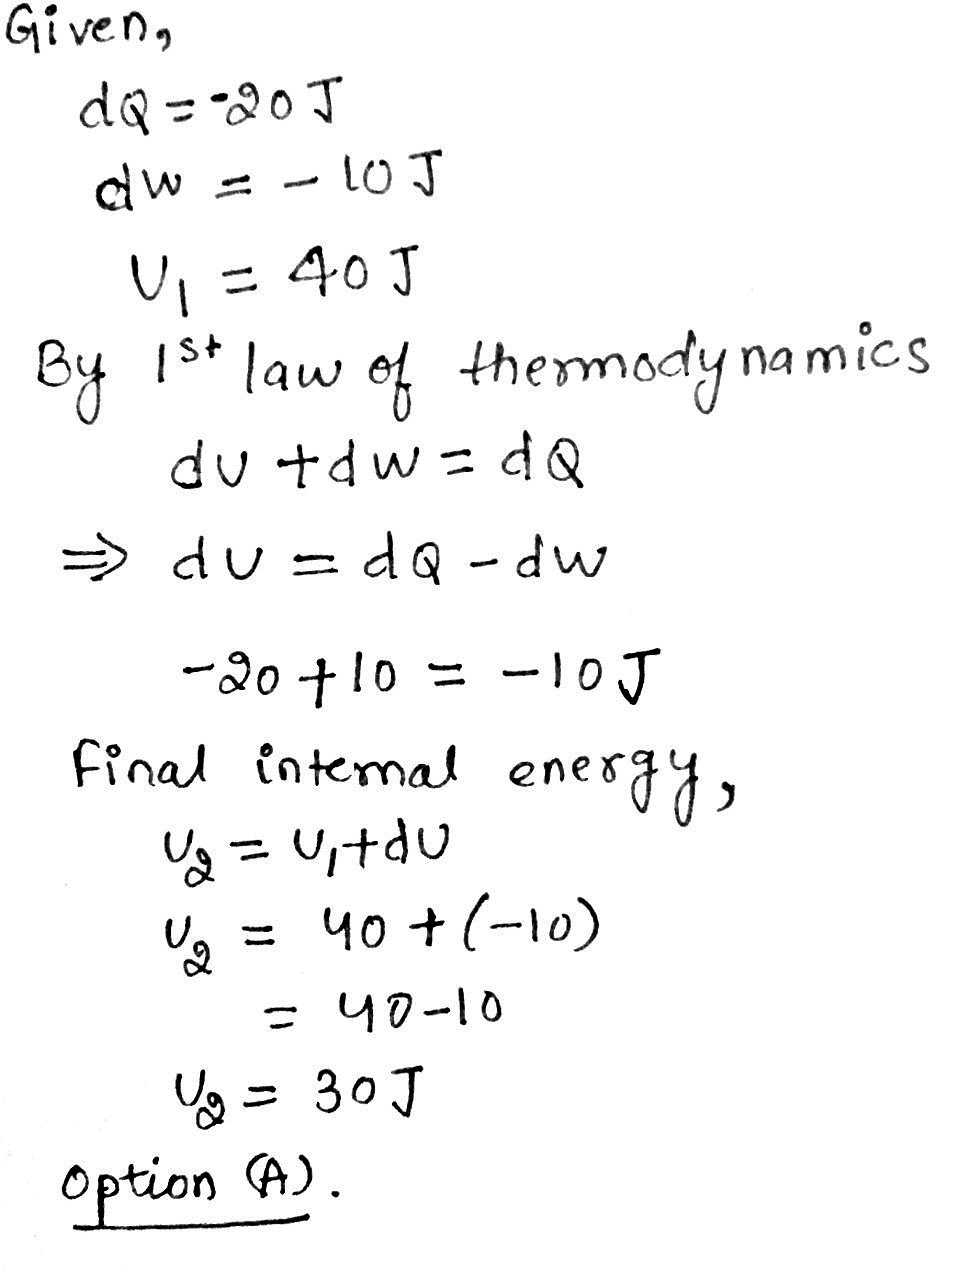 Given,
dQ = -20 J
dw = - 10 J
U1 = 40 J
By 1st law of thermodynamics
du + dw = dQ
⇒ du = dQ - dw
-20 + 10 = -10 J
Final internal energy,
U2 = U1 + dU
U2 = 40 + (-10)
= 40 - 10
U2 = 30 J
option (A).